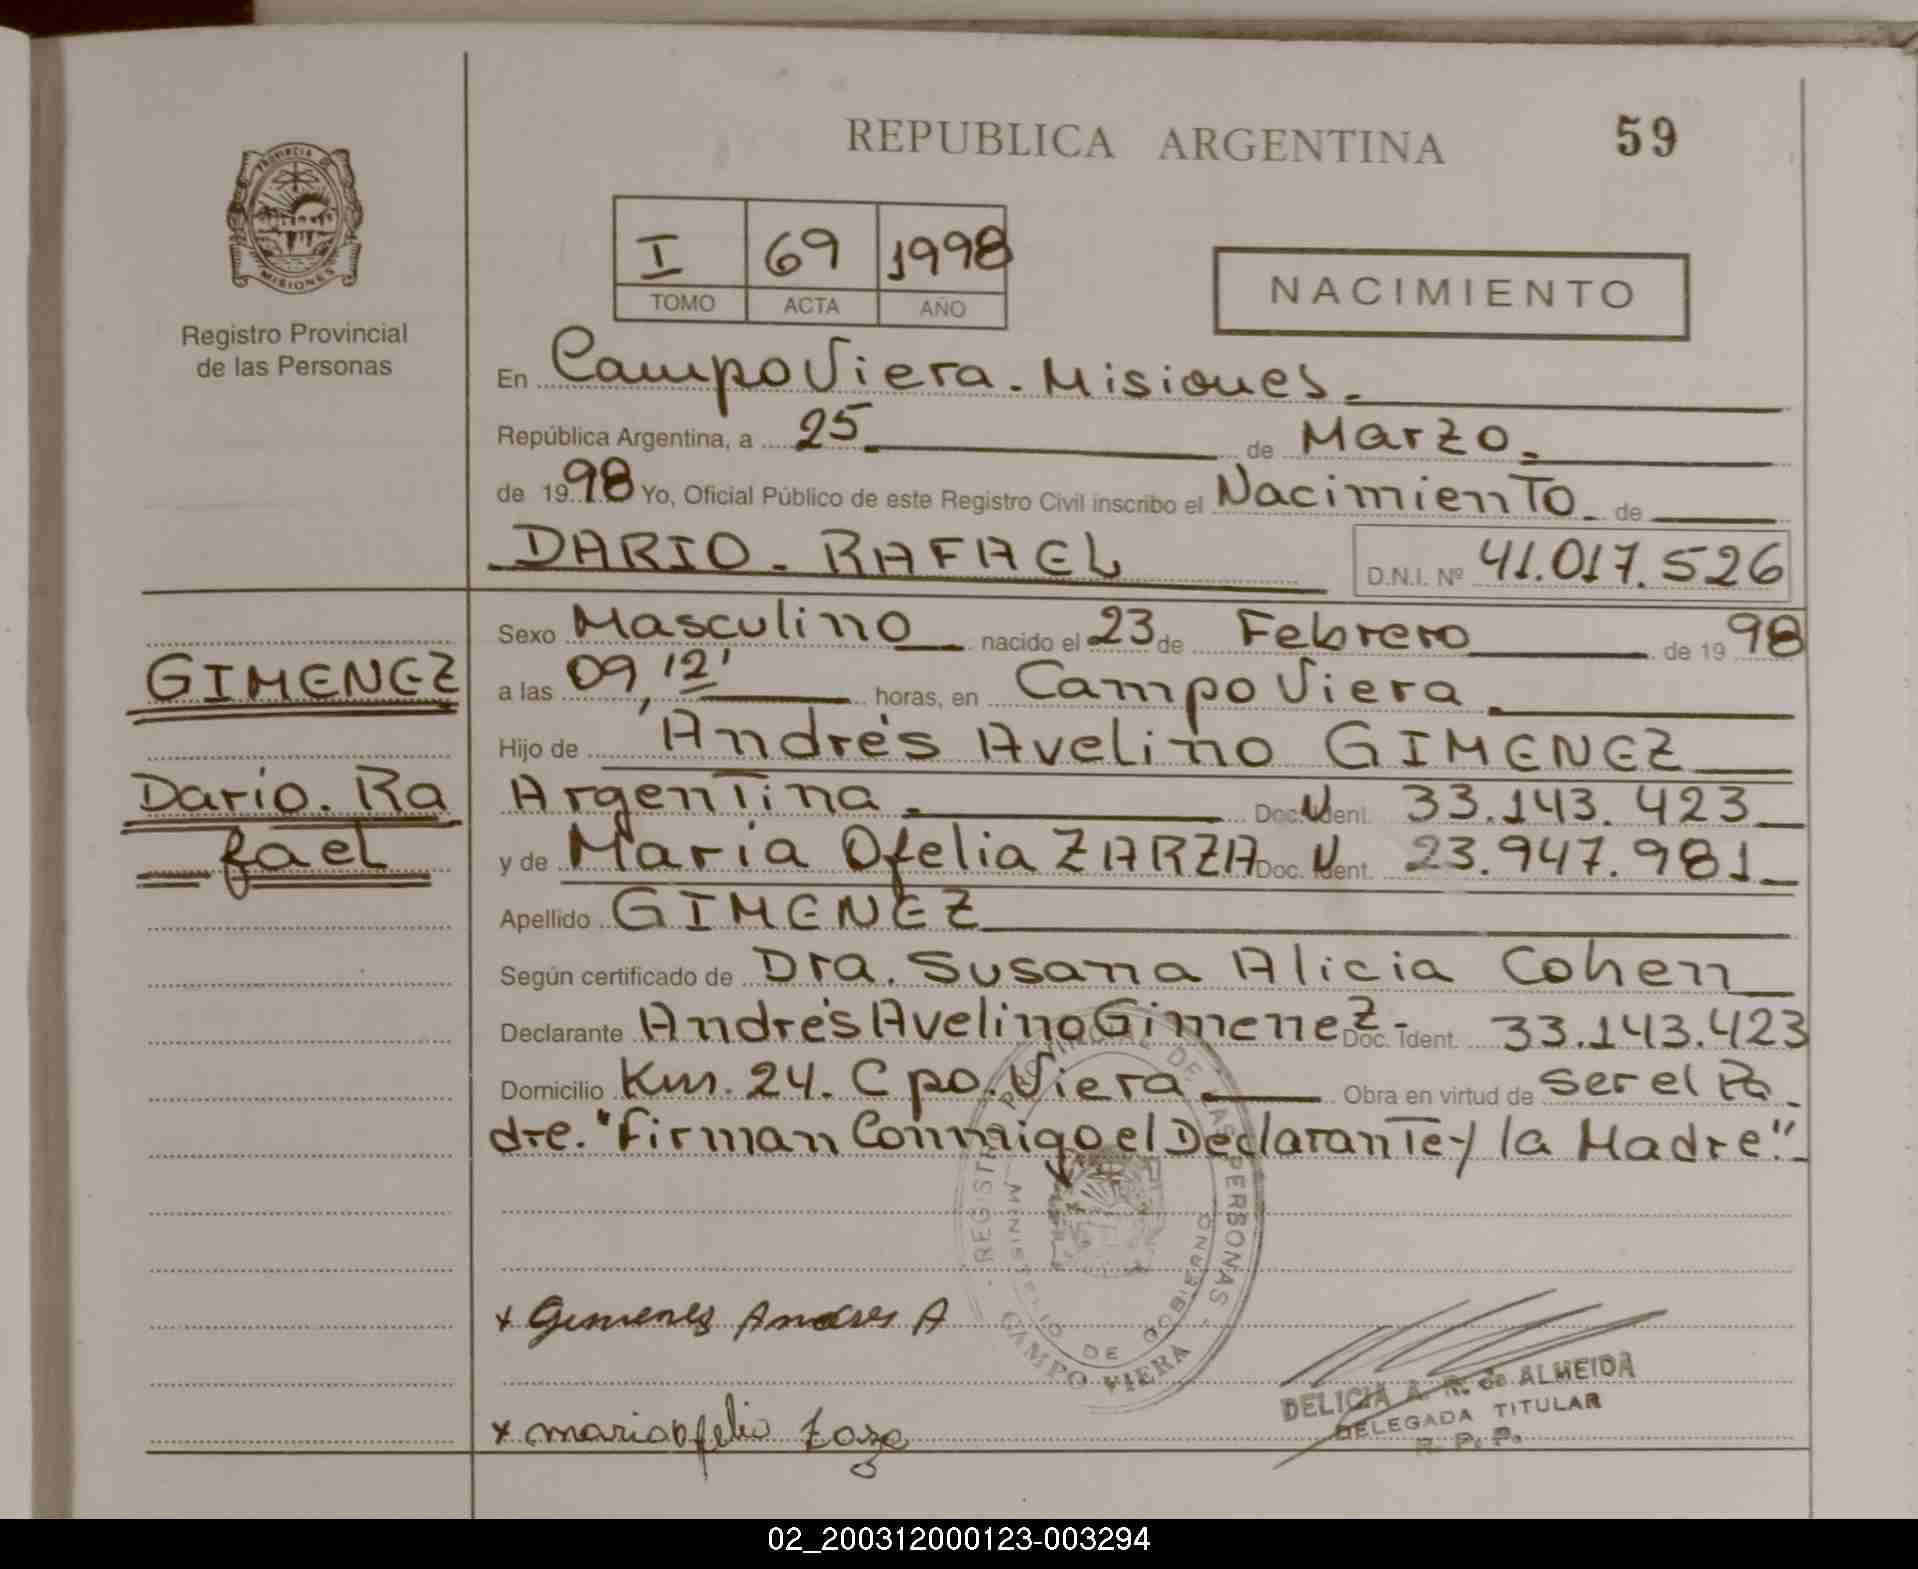 REPUBLICA ARGENTINA
59
PROVINCIA DE
MISIONES
Registro Provincial
de las Personas
I 69 1998
TOMO ACTA AÑO
NACIMIENTO
En Campo Viera. Misiones.
República Argentina, a 25 de Marzo.
de 1998 Yo, Oficial Público de este Registro Civil inscribo el Nacimiento de
DARIO. RAFAEL D.N.I. Nº 41.017.526
GIMENEZ
Dario. Ra
fael
Sexo Masculino nacido el 23 de Febrero de 1998
a las 09,12' horas, en Campo Viera.
Hijo de Andrés Avelino GIMENEZ
Argentina. Doc. Ident. 33.143.423
y de Maria Ofelia ZARZA Doc. Ident. 23.947.981
Apellido GIMENEZ
Según certificado de Dra. Susana Alicia Cohen
Declarante Andrés Avelino Gimenez- Doc. Ident. 33.143.423
Domicilio Km. 24. Cpo. Viera Obra en virtud de ser el Pa
dre. "Firman Conmigo el Declarante y la Madre".-
REGISTRO PROVINCIAL DE LAS PERSONAS
MINISTERIO DE GOBIERNO
CAMPO VIERA
x Gimenez Andres A
x maria ofelia Zarza
DELICIA A. R. de ALMEIDA
DELEGADA TITULAR
R. P. P.
02_200312000123-003294